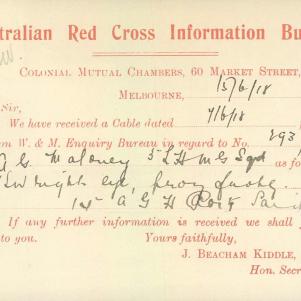 stralian Red Cross Information Bu
COLONIAL MUTUAL CHAMBERS, 60 MARKET STREET,
MELBOURNE, 15/6/18
Sir,
We have received a Cable dated 7/6/18
m W. & M. Enquiry Bureau in regard to No. 293
A G Maloney 3rd L H M G Sqd as fo
right eye,
1st A G H Port Sai
If any further information is received we shall f
to you. Yours faithfully,
J. BEACHAM KIDDLE,
Hon. Secr